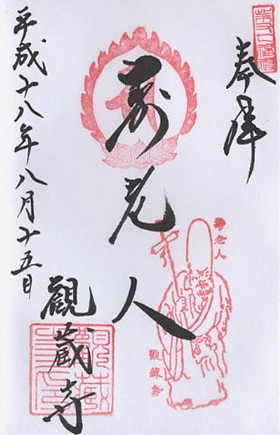 奉拝
寿老人
平成十八年八月十五日
観蔵寺
寿老人
観蔵寺